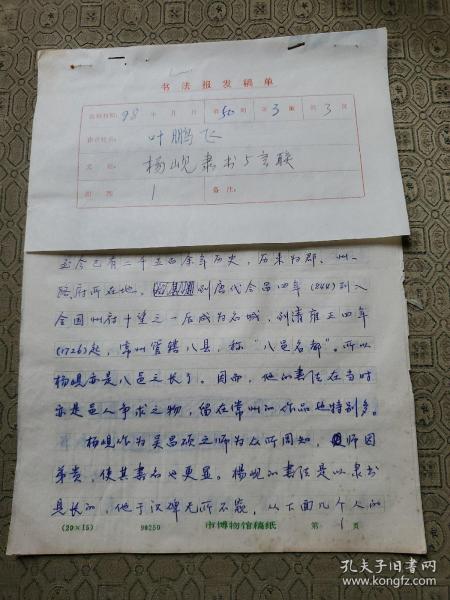 书法报发稿单
98 年 月 日 第50期 第3版 共3页
作者姓名: 叶鹏飞
文 题: 杨岘隶书五言联
图 照 1 备注:
至今已有二千五百余年历史,后来为郡、州、
路府所在地,到唐代会昌四年(844)列入
全国州府十望之一后成为名城,到清雍正四年
(1726)起,常州管辖八县,称“八邑名都”。所以
杨岘亦是八邑之长了。因而,他的书法在当时
亦是邑人争求之物,留在常州的作品也特别多。
杨岘作为吴昌硕之师为众所周知,师因
弟贵,使其书名也更显。杨岘的书法是以隶书
见长的,他于汉碑无所不窥,从下面几个人的
(20×15) 90250 市博物馆稿纸 第 1 页
孔夫子旧书网
www.kongfz.com